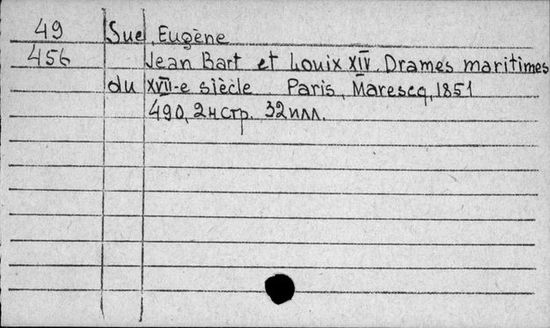 49 Sue, Eugène
456 Jean Bart et Louix XIV. Drames maritimes
du XVII-e siècle Paris, Marescq, 1851
490, 2нстр. 32илл.